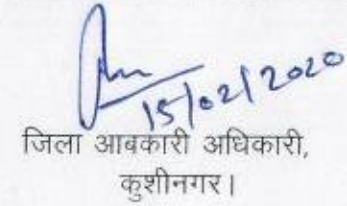 15/02/2020
जिला आबकारी अधिकारी,
कुशीनगर।